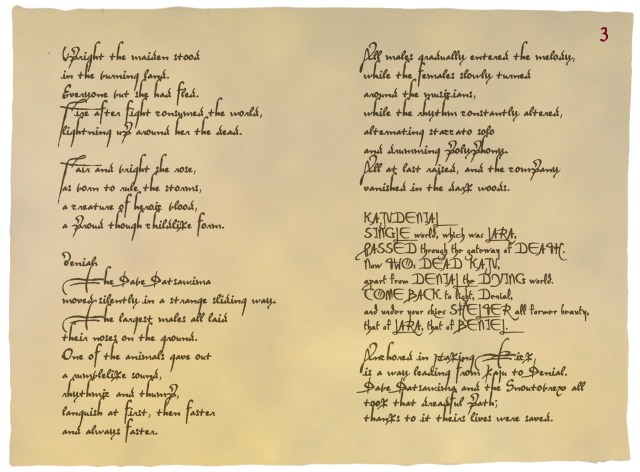 3
Upright the maiden stood
in the burning land.
Everyone but she had fled.
Fire after fight consumed the world,
lightning up around her the dead.
Fair and bright she rose,
as born to rule the storms,
a creature of heroic blood,
a proud though childlike form.
Deniah
The Dabe Datsawima
moved silently in a strange sliding way.
The largest males all laid
their noses on the ground.
One of the animals gave out
a rumblelike sound,
rhythmic and thump,
languish at first, then faster
and always faster.
All males gradually entered the melody,
while the females slowly turned
around the musicians,
while the rhythm constantly altered,
alternating staccato solo
and drumming polyphony.
All at last raised, and the company
vanished in the dark woods.
KAJU.DENIAL
SINGLE world, which was JARA,
PASSED through the gateway of DEATH.
Now TWO: DEAD KAJU,
apart from DENIAL the DYING world.
COME BACK to light, Denial,
and under your skies SHELTER all former beauty,
that of JARA, that of DENIEL.
Anchored in
is a way leading from Kaju to Denial.
Dabe Datsawima and the Snoutobrex all
took that dreadful path;
thanks to it theirs lives were saved.